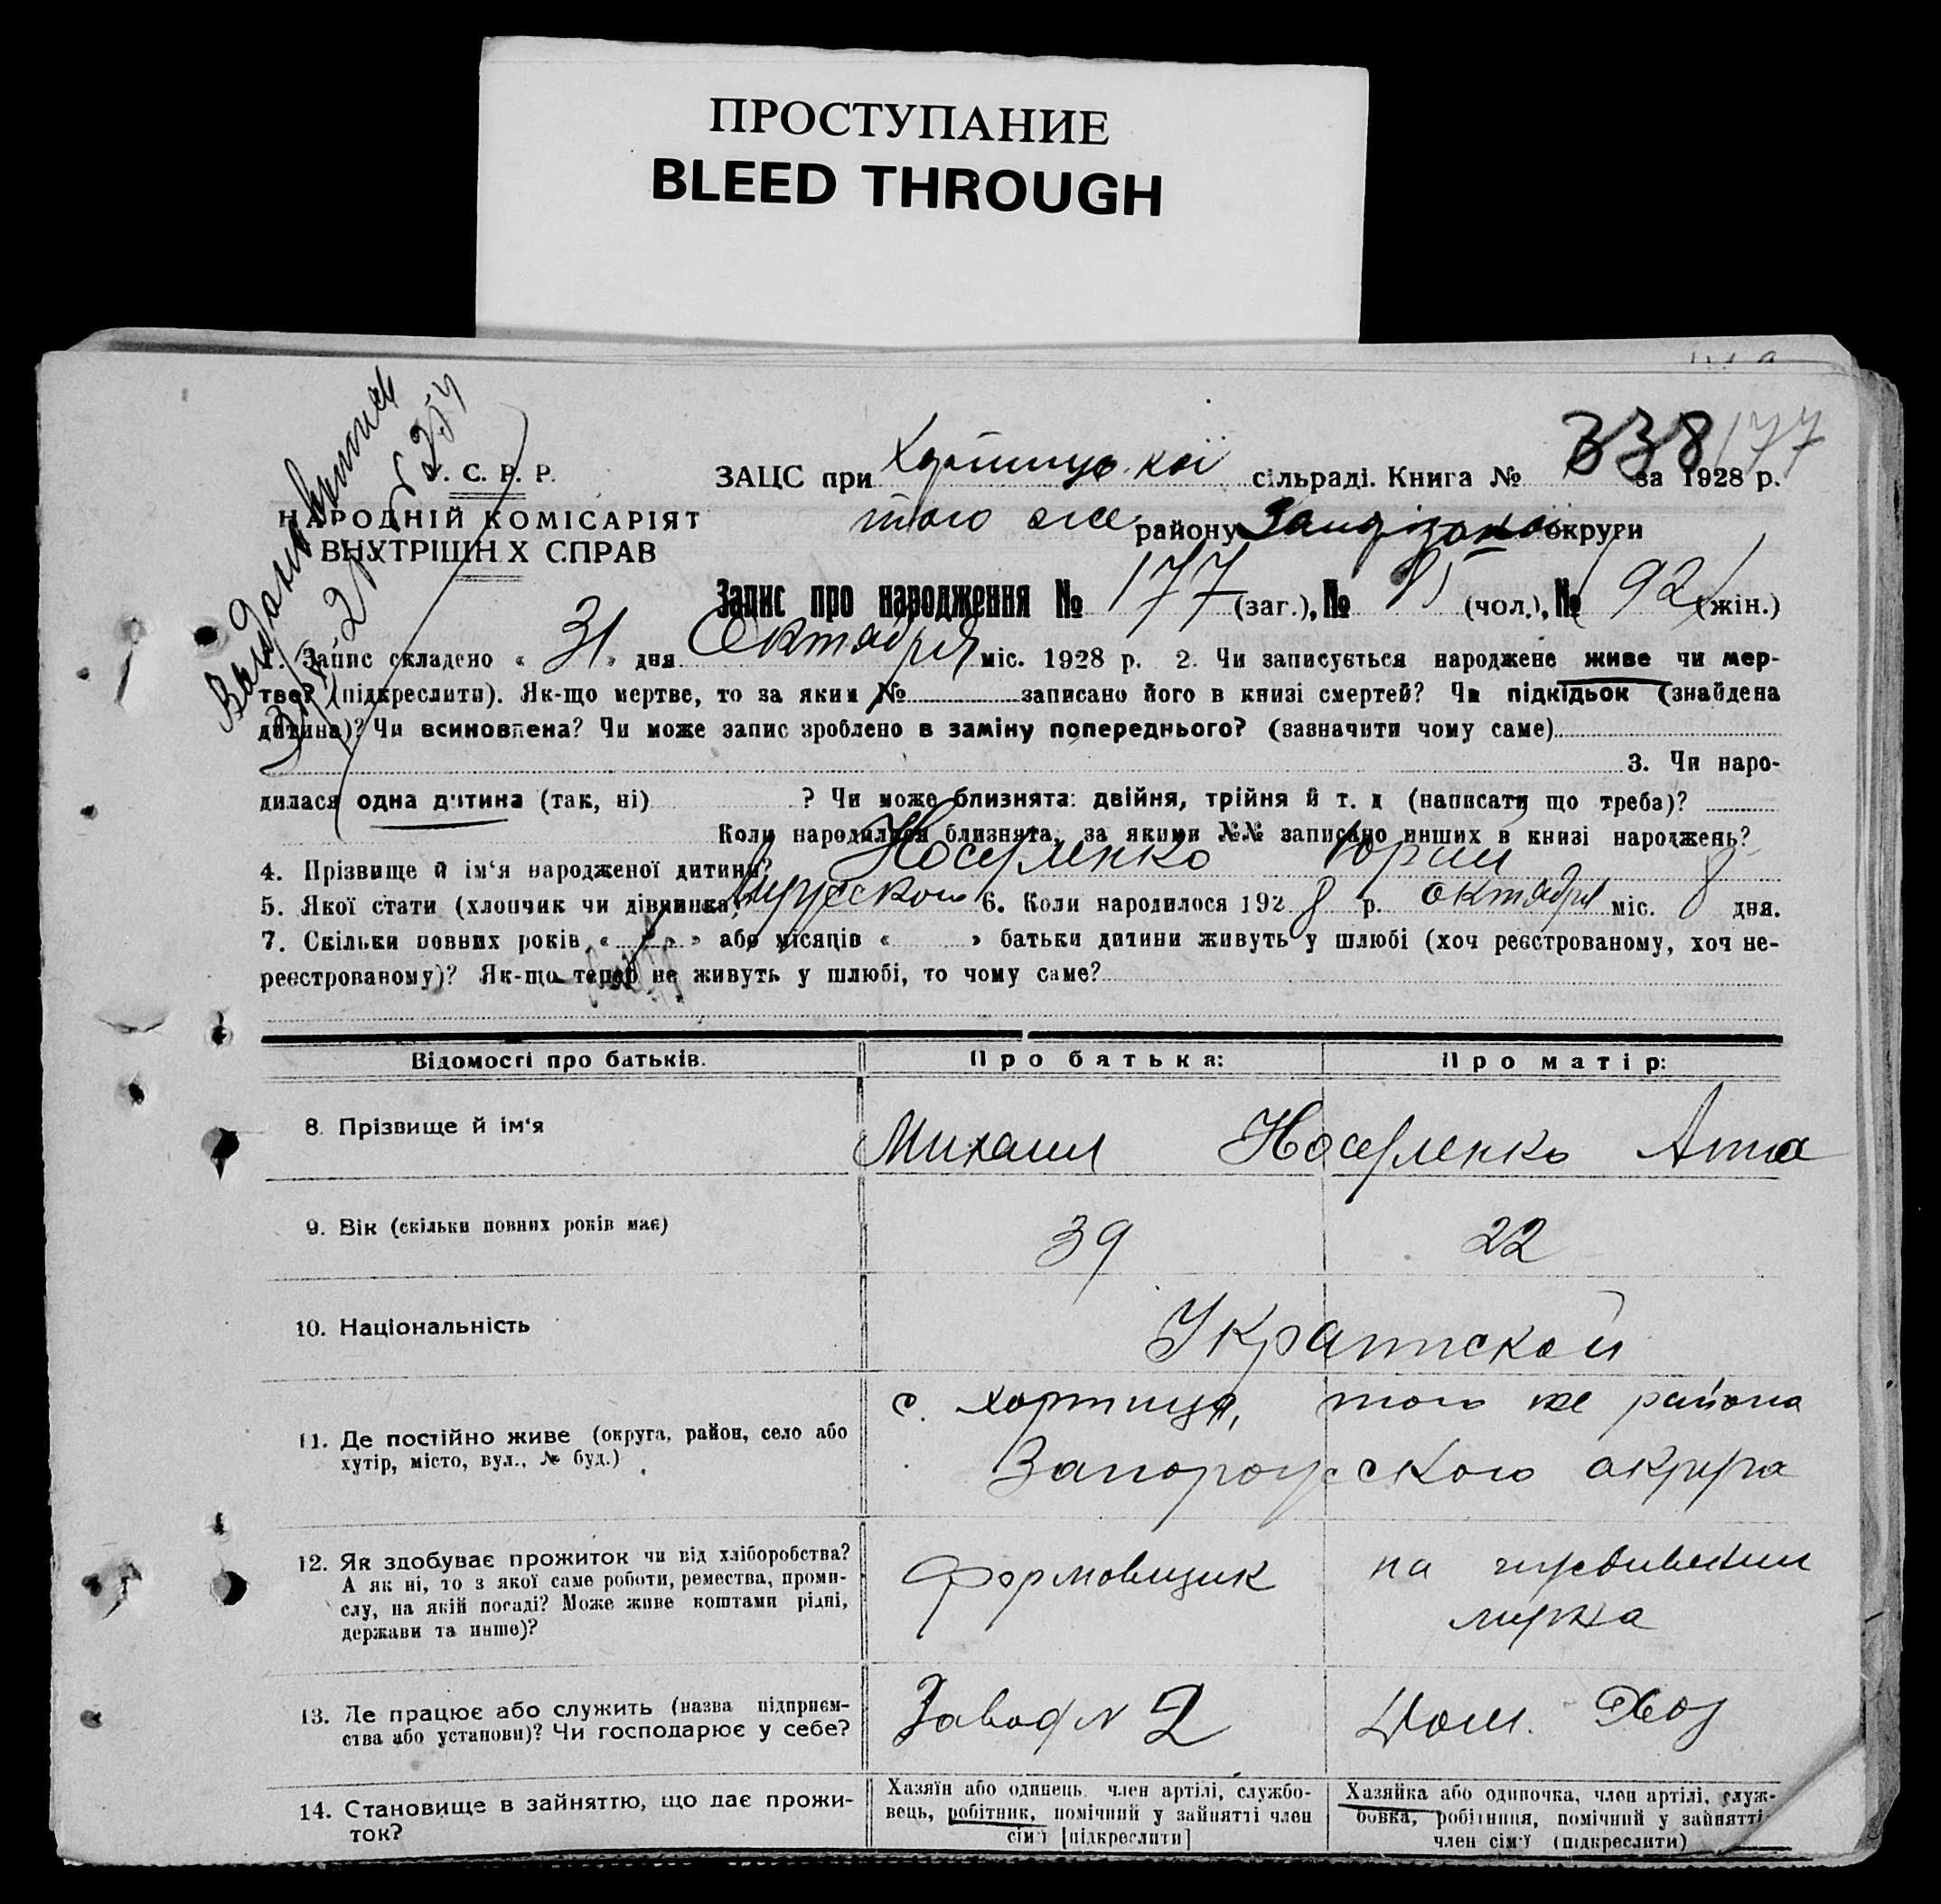 ПРОСТУПАНИЕ
BLEED THROUGH
338/177
У. С. Р. Р.
НАРОДНІЙ КОМІСАРІЯТ
ВНУТРІШН Х СПРАВ
ЗАЦС при сільраді. Книга № за 1928 р.
того же району округи
Запис про народження № 177 (заг.), № 85 (чол.), № 92 (жін.)
1. Запис складено « 31 » дня Октября міс. 1928 р. 2. Чи записується народжене живе чи мер-
тве? (підкреслити). Як-що мертве, то за яким № записано його в книзі смертей? Чи підкідьок (знайдена
дитина)? Чи всиновлена? Чи може запис зроблено в заміну попереднього? (зазначити чому саме)
3. Чи наро-
дилася одна дитина (так, ні) ? Чи може близнята: двійня, трійня й т. д (написати що треба)?
Коли народилися близнята, за якими №№ записано инших в книзі народжень?
4. Прізвище й ім'я народженої дитини? Юрий
5. Якої стати (хлопчик чи дівчинка) мужского 6. Коли народилося 1928 р. октября міс. 8 дня.
7. Скільки повних років « » або місяців « » батьки дитини живуть у шлюбі (хоч реєстрованому, хоч не-
реєстрованому)? Як-що тепер не живуть у шлюбі, то чому саме?
Відомості про батьків. Про батька: Про матір:
8. Прізвище й ім'я Михаил Анна
9. Вік (скільки повних років має) 39 22
10. Національність Украинской
11. Де постійно живе (округа, район, село або
хутір, місто, вул., № буд.)
с. Хортица, того же района
Запорожского округа
12. Як здобуває прожиток чи від хліборобства?
А як ні, то з якої саме роботи, ремества, проми-
слу, на якій посаді? Може живе коштами рідні,
держави та инше)?
формовщик
на иждивении
мужа
13. Де працює або служить (назва підприєм-
ства або установи)? Чи господарює у себе?
Завод N 2
Дом. Хоз
14. Становище в зайняттю, що дає прожи-
ток?
Хазяїн або одинець член артілі, службо-
вець, робітник, помічний у зайнятті член
сім'ї [підкреслити]
Хазяйка або одиночка, член артілі, служ-
бовка, робітниця, помічний у зайнятті
член сім'ї (підкреслити)